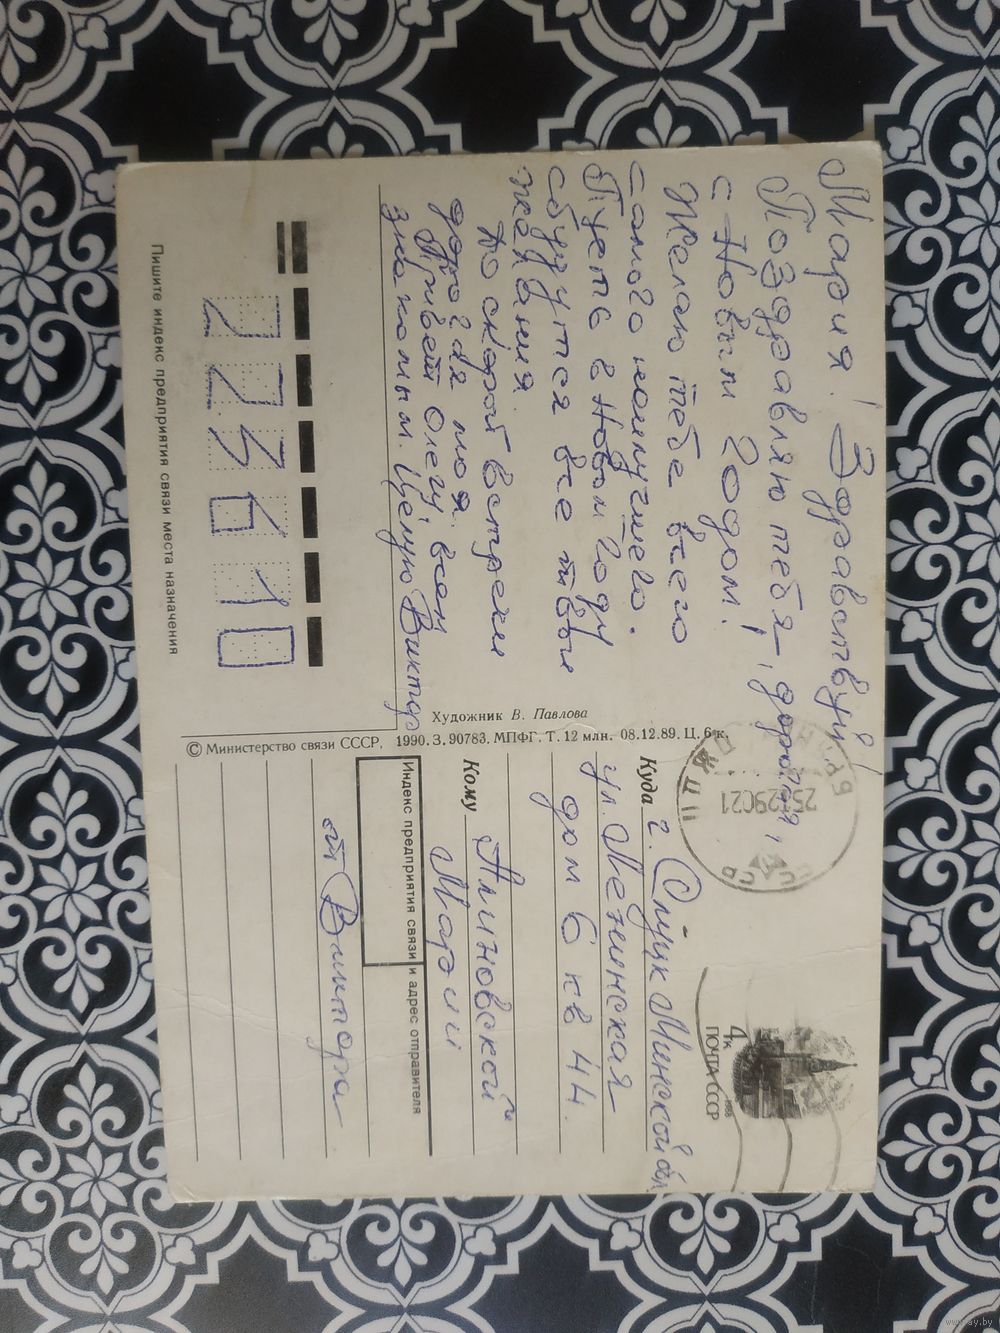 Мария! Здравствуй!
Поздравляю тебя, дорогая,
с Новым Годом!
Желаю тебе всего
самого наилучшего.
Пусть в Новом году
сбудутся все твои
желания.
До скорой встречи
дорогая моя.
Привет Олегу, всем
знакомым. Целую Виктор
223610
Пишите индекс предприятия связи места назначения
Художник В. Павлова
© Министерство связи СССР, 1990. З. 90783. МПФГ. Т. 12 млн. 08.12.89. Ц. 6 к.
ПОЧТА СССР
4к
1988
СССР
25129021
Куда г. Слуцк Минской обл.
ул. Ленинская
дом 6 кв 44.
Кому
Марыли
Индекс предприятия связи и адрес отправителя
от Виктора
www.ay.by